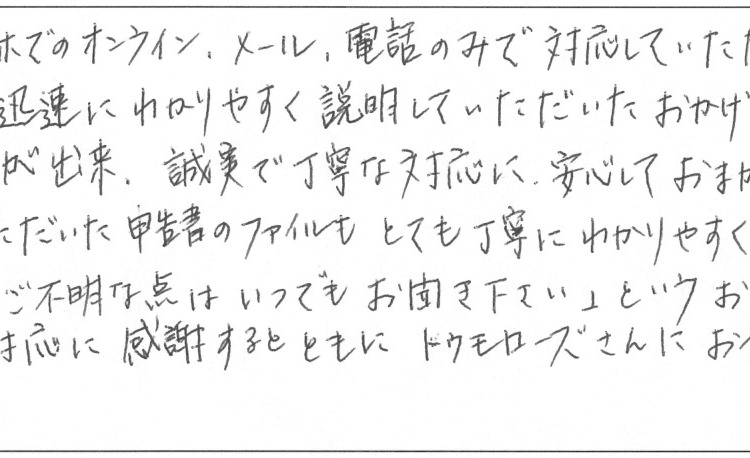 ホでのオンライン、メール、電話のみで対応していただ
迅速にわかりやすく説明していただいたおかげ
が出来、誠実で丁寧な対応に、安心しておまか
ただいた申告書のファイルもとても丁寧にわかりやすく
ご不明な点はいつでもお聞き下さい」というお
対応に感謝するとともにトゥモローズさんにお